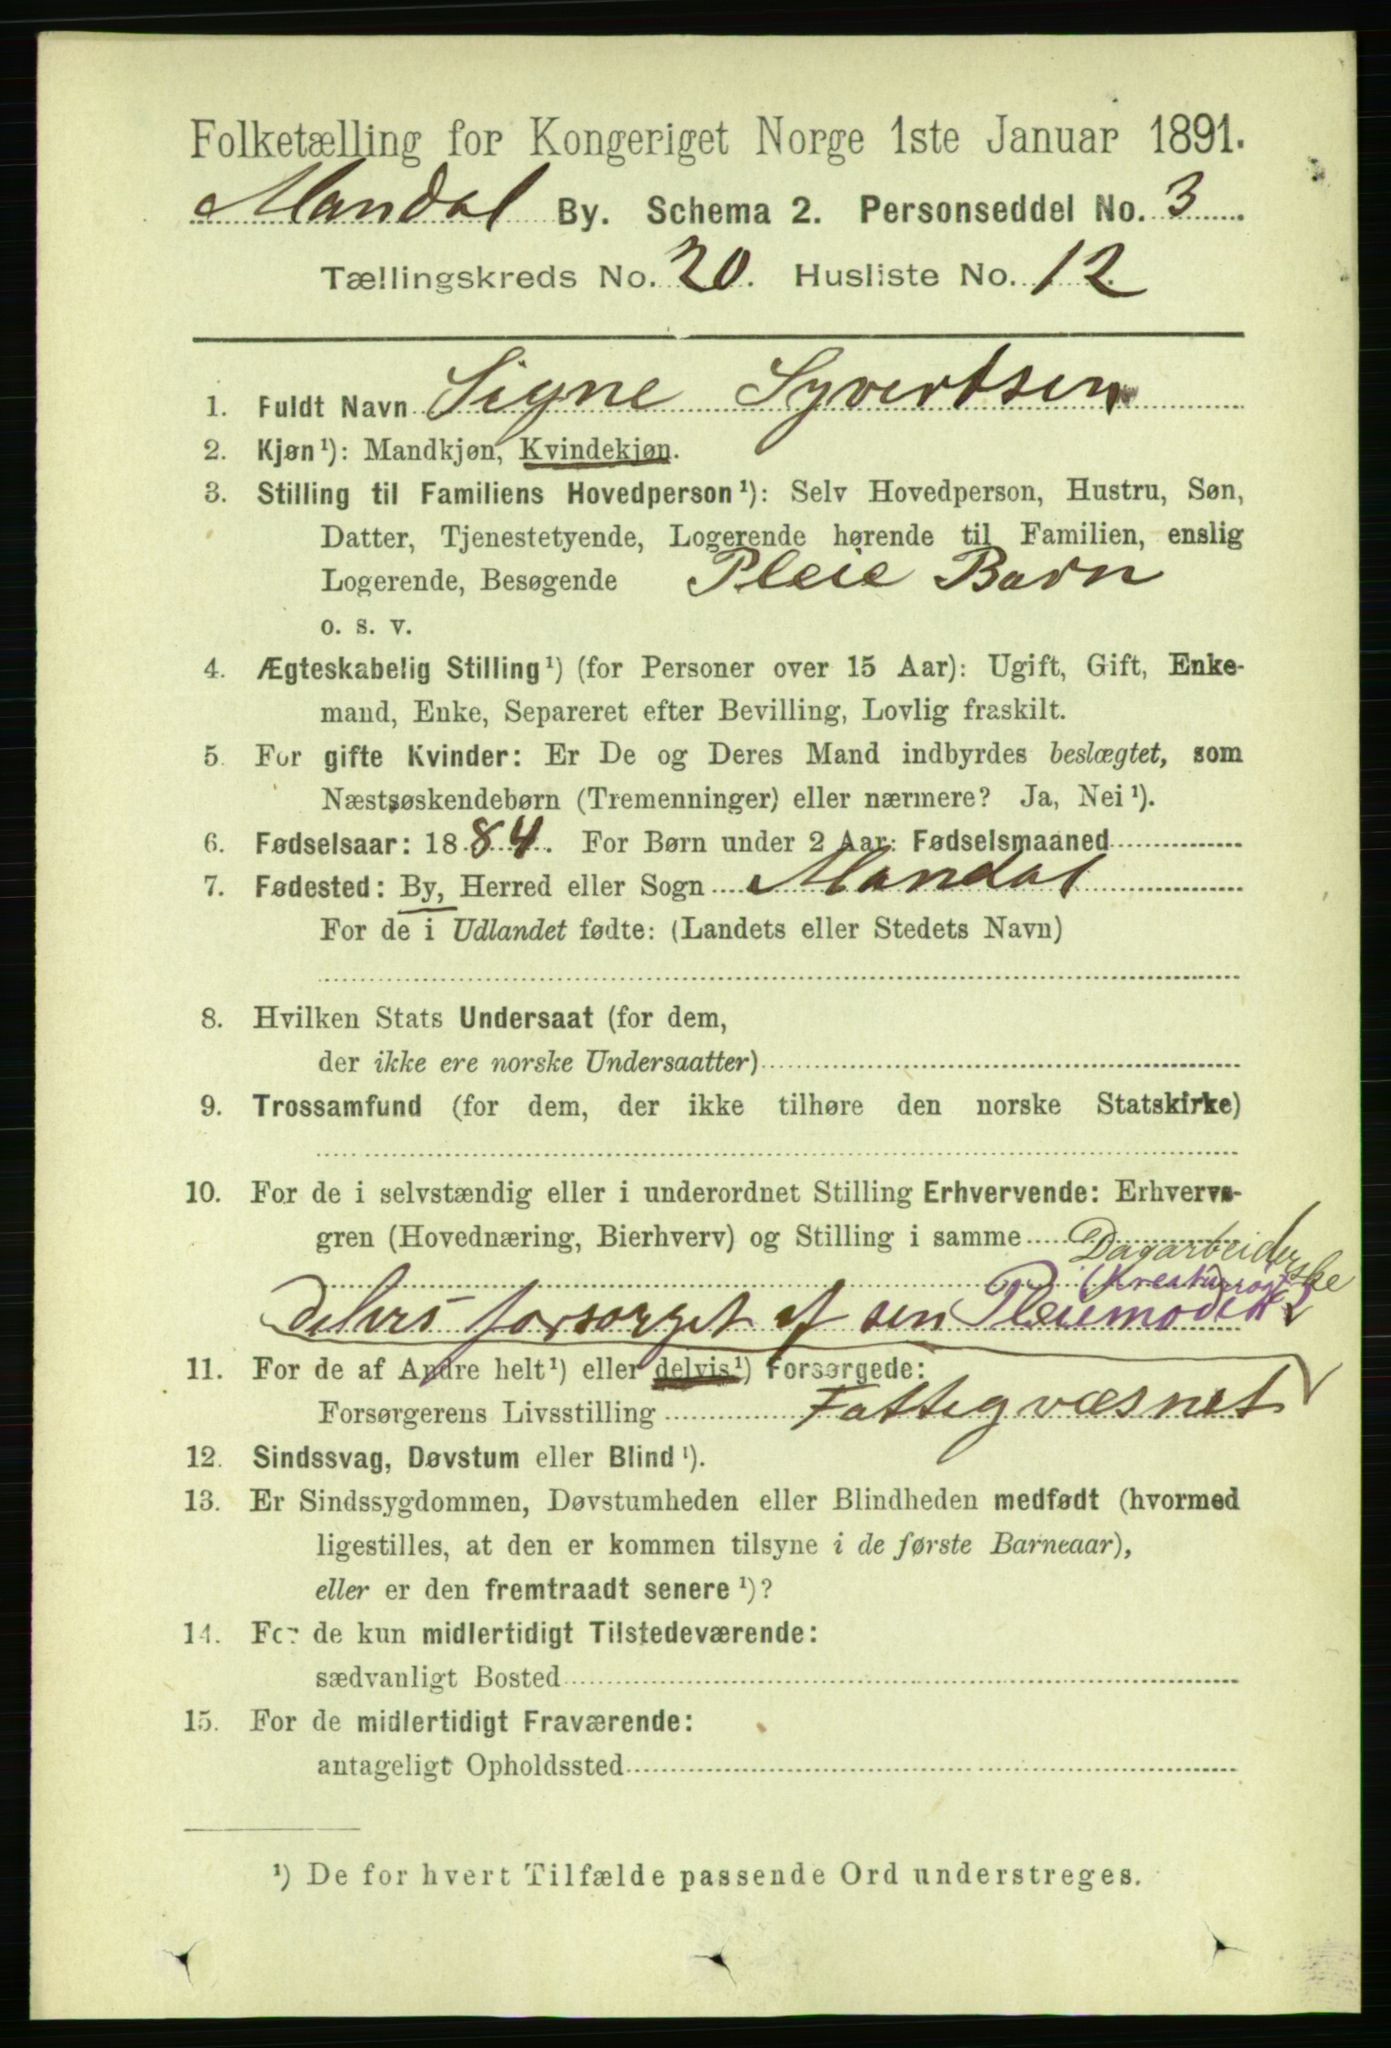 Folketælling for Kongeriget Norge 1ste Januar 1891.
Mandal By. Schema 2. Personseddel No. 3
Tællingskreds No. 20. Husliste No. 12.
1. Fuldt Navn Signe Syvertsen
2. Kjøn¹): Mandkjøn, Kvindekjøn.
3. Stilling til Familiens Hovedperson¹): Selv Hovedperson, Hustru, Søn,
Datter, Tjenestetyende, Logerende hørende til Familien, enslig
Logerende, Besøgende Pleie Barn
o. s. v.
4. Ægteskabelig Stilling¹) (for Personer over 15 Aar): Ugift, Gift, Enke-
mand, Enke, Separeret efter Bevilling, Lovlig fraskilt.
5. For gifte Kvinder: Er De og Deres Mand indbyrdes beslægtet, som
Næstsøskendebørn (Tremenninger) eller nærmere? Ja, Nei¹).
6. Fødselsaar: 1884. For Børn under 2 Aar: Fødselsmaaned
7. Fødested: By, Herred eller Sogn Mandal
For de i Udlandet fødte: (Landets eller Stedets Navn)
8. Hvilken Stats Undersaat (for dem,
der ikke ere norske Undersaatter)
9. Trossamfund (for dem, der ikke tilhøre den norske Statskirke)
10. For de i selvstændig eller i underordnet Stilling Erhvervende: Erhvervs-
gren (Hovednæring, Bierhverv) og Stilling i samme Dagarbeiderske
delvis forsorget af sen Pleiemoder
11. For de af Andre helt¹) eller delvis¹) Forsørgede:
Forsørgerens Livsstilling Fattigvæsnet
12. Sindssvag, Døvstum eller Blind¹).
13. Er Sindssygdommen, Døvstumheden eller Blindheden medfødt (hvormed
ligestilles, at den er kommen tilsyne i de første Barneaar),
eller er den fremtraadt senere¹)?
14. For de kun midlertidigt Tilstedeværende:
sædvanligt Bosted
15. For de midlertidigt Fraværende:
antageligt Opholdssted
¹) De for hvert Tilfælde passende Ord understreges.